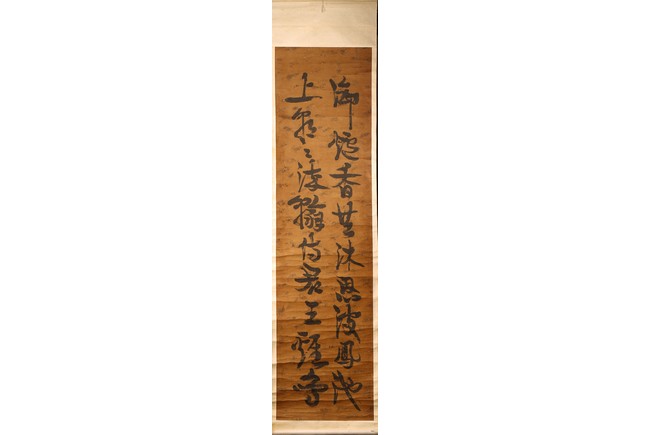 御爐香共沐恩波鳳池
上朝々染翰侍君王雞鳴